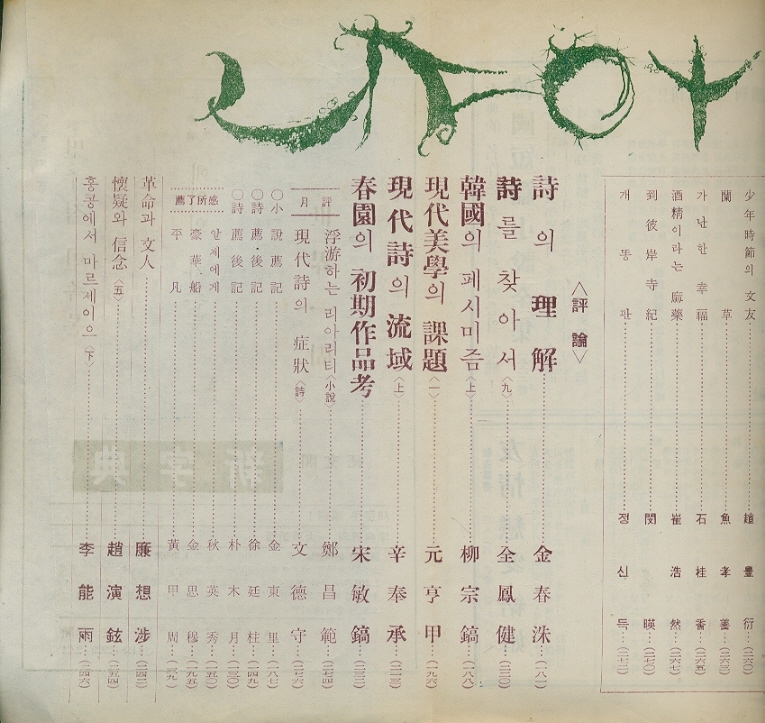 少年時節의 文友 趙豊衍 (二六〇)
蘭草 魚孝善 (二六三)
가난한 幸福 石桂香 (二六五)
酒精이라는 麻藥 崔浩然 (二六七)
到彼岸寺紀 閔暎 (二七〇)
개똥판 정신득
〈評論〉
詩의 理解 金春洙 (一八一)
詩를 찾아서 〈九〉 全鳳健
韓國의 페시미즘 〈上〉 柳宗鎬 (一八八)
現代美學의 課題 〈一〉 元亨甲 (一九六)
現代詩의 流域 〈上〉 辛奉承 (二一三)
春園의 初期作品考 宋敏鎬 (二三二)
月評
浮游하는 리아리티 〈小說〉 鄭昌範 (二七四)
現代詩의 症狀 〈詩〉 文德守 (二七六)
○小說薦記 金東里 (一八七)
○詩薦後記 徐廷柱 (二四九)
○詩薦後記 朴木月 (一三〇)
薦了所感
안제에게 秋英秀 (一五〇)
豪華船 金思穆 (一九五)
平凡 黃甲周
革命과 文人 廉想涉 (二四二)
懷疑와 信念 〈五〉 趙演鉉 (一五四)
홍콩에서 마르세이으 〈下〉 李能雨 (二四六)